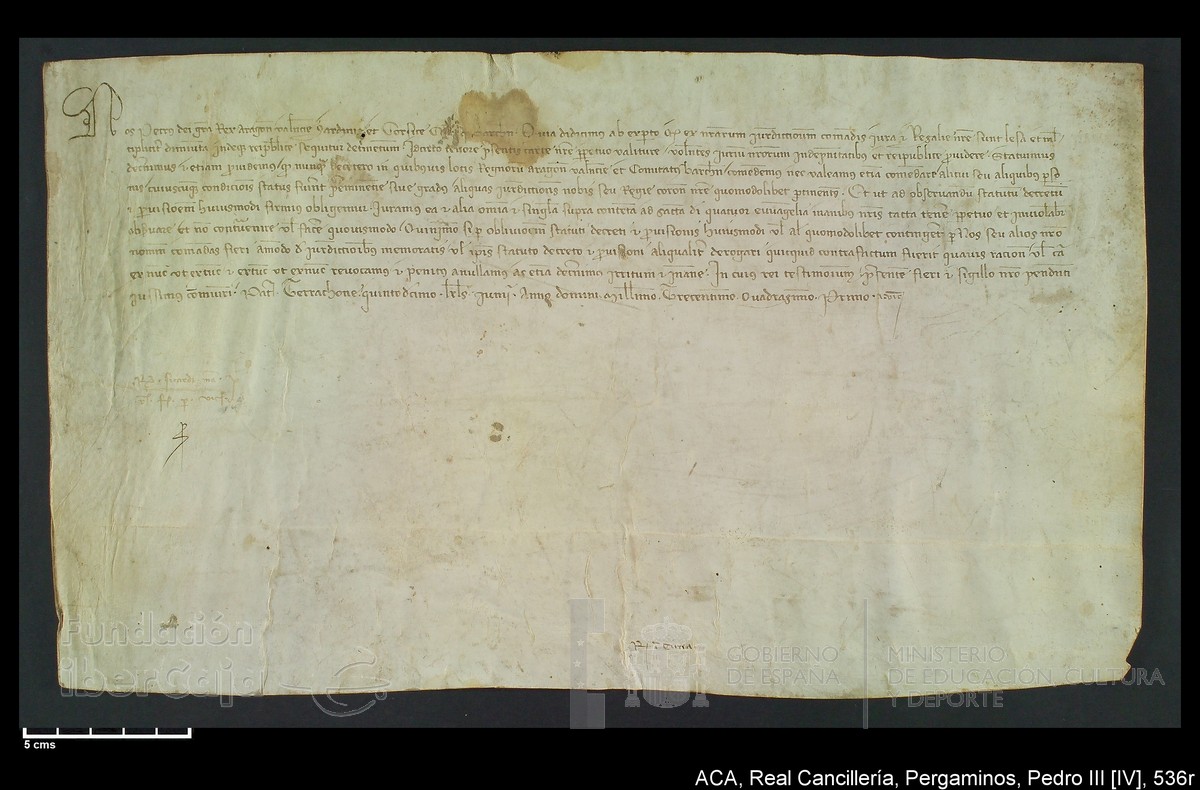 Nos Petrus dei gra Rex Aragon Valencie Sardinie et Corsice Comesq Barchn Quia didicimus ab experto q ex nrarum iurediccionum comandis iura et Regalie nre sunt lesa et ml
tiplicit diminuta Indeq reipublice sequitur detrimentum Idcirco tenore psentis carte nre perpetuo valiture volentes iurium nrorum indempnitatibus et reipublice providere Statuimus
decernimus et etiam providemus q nunq decetero in quibusvis locis Regnoru Aragon Valencie et Comitatus Barchn comendemus nec valeamus etiam comendare alicui seu aliquibus pso
nis cuiuscuq condicionis status fuerint preminencie sive gradus aliquas iuredictiones nobis seu Regie corone nre quomodolibet ptinentes Et ut ad observandum statutum decretum
et provisionem huiusmodi firmius obligemur Iuramus ea et alia omnia et singula supra contenta ad sancta di quatuor evuangelia manibus nris tacta tenere perpetuo et inviolabr
observare Et non contravenire vel facere quovismodo Quinimo si p oblivionem statuti decreti et provisionis huiusmodi vel al quomodolibet contingeret p Nos seu alios nro
nomine comandas fieri amodo de iuredictionibus memoratis vel ipsis statuto decreto et provisioni aliqualiter derogari quicquid contrafactum fuerit quavis racione vel ca
ex nunc ut extunc et extunc ut exnunc revocamus et penitus anullamus ac etia decernimus irritum et inane In cuius rei testimonium psentem fieri et sigillo nro pendenti
iussimus comuniri Dat Terrachone quintodecimo kls Iunii Anno domini Millimo Trecentesimo Quadragesimo Primo
Rx
Fundación
iberCaja
GOBIERNO
DE ESPAÑA
MINISTERIO
DE EDUCACIÓN, CULTURA
Y DEPORTE
5 cms
ACA, Real Cancillería, Pergaminos, Pedro III [IV], 536r